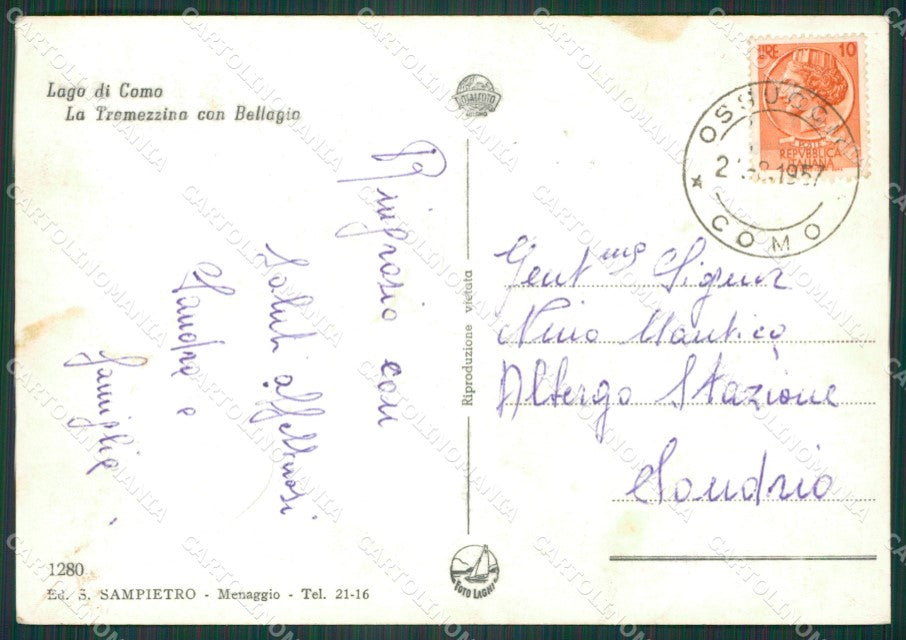 Lago di Como
La Tremezzina con Bellagio
Ringrazio con
Saluti affettuosi
Sandra e
famiglia
Riproduzione vietata
LIRE 10
REPVBBLICA
ITALIANA
OSSUCCIO
2 1957
COMO
Gent.mo Signor
Nino Mantica
Albergo Stazione
Sondrio
1280
Ed. S. SAMPIETRO - Menaggio - Tel. 21-16
FOTO LAGHI
CARTOLINOMANIA